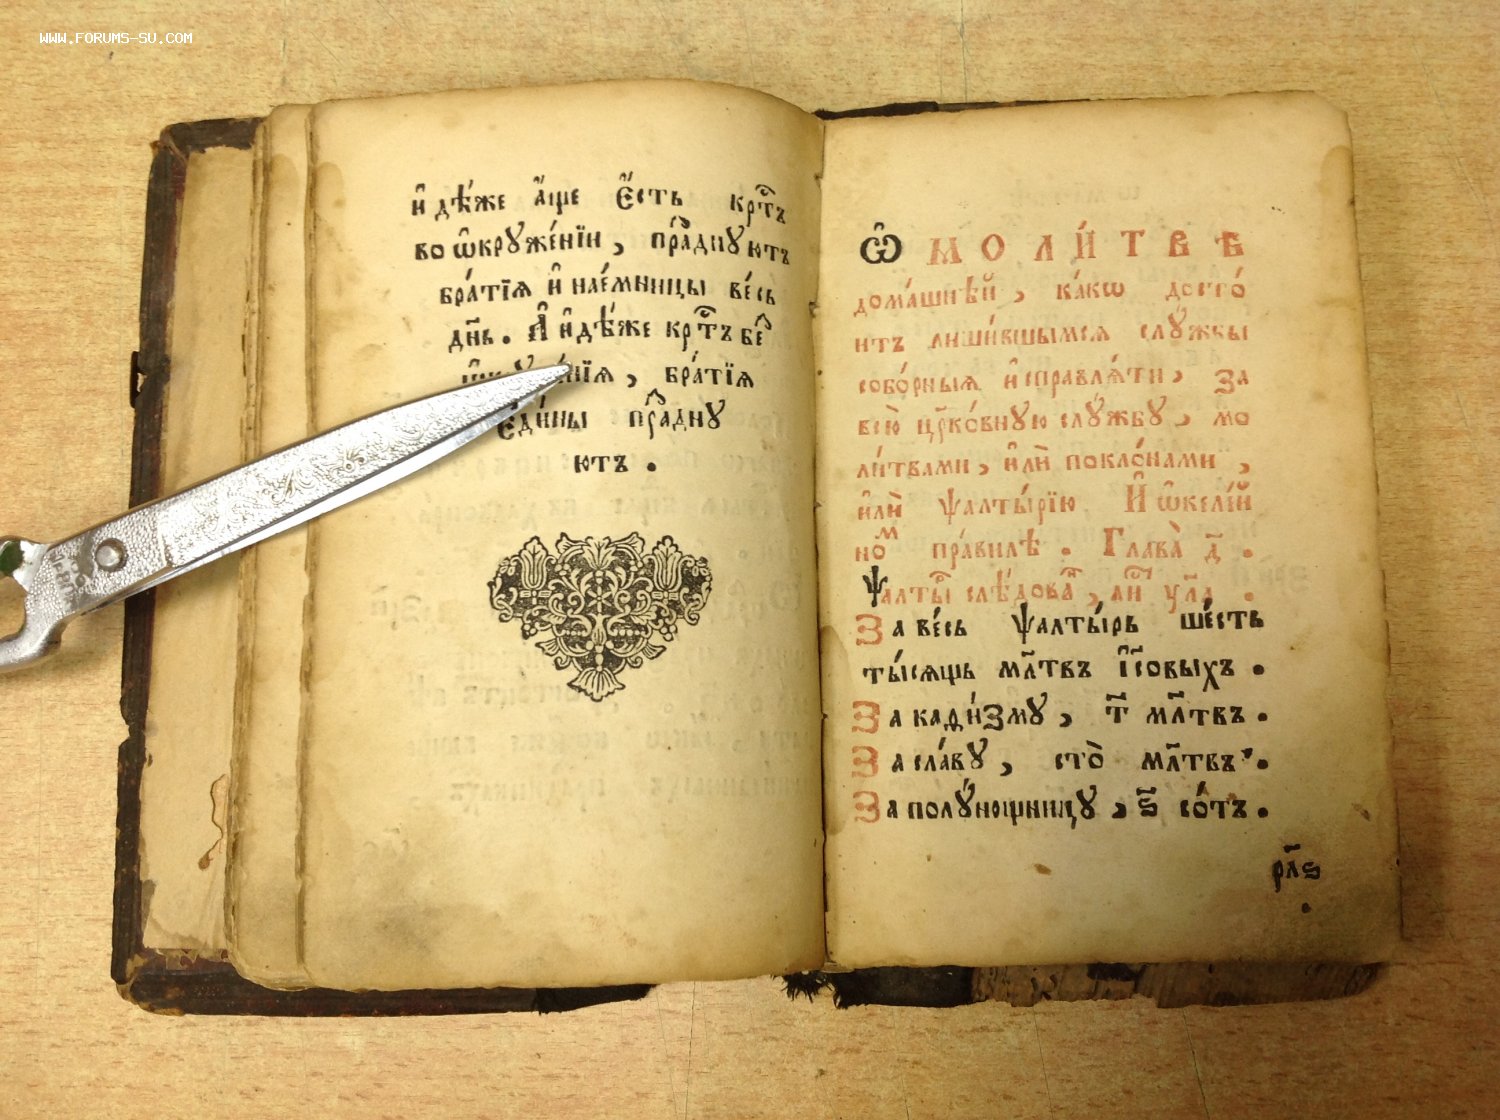 WWW.FORUMS-SU.COM
и҆ дѣ́же а҆́ще є҆́сть крⷭ҇тъ
во ѡ҆кружє́нїи, пра́днуютъ
бра́тїѧ и҆ нає́мницы ве́сь
дн҃ь. А҆ и҆дѣ́же крⷭ҇тъ беⷥ
бра́тїѧ
є҆ди́ны пра́дну
ютъ.
Ѽ МОЛИ́ТВѢ
дома́шнѣй, ка́кѡ досто́
итъ лиши́вшымсѧ слу́жбы
собо́рныѧ и҆справлѧ́ти, за
всю̀ цр҃ко́вную слу́жбу, мо
ли́твами, и҆лѝ покло́нами,
и҆лѝ ѱалты́рїю. И҆ ѡ҆келе́й
ноⷨ пра́вилѣ. Глава̀ д҃.
Ѱалты́ слѣ́дова
За ве́сь ѱалты́рь ше́сть
ты́сѧщь мл҃твъ і҆сⷭ҇овыхъ.
За каѳи́зму, т҃ мл҃твъ.
За сла́ву, сто̀ мл҃твъ.
За полу́нощницу, ѕ҃ со́тъ.
рл҃ѕ